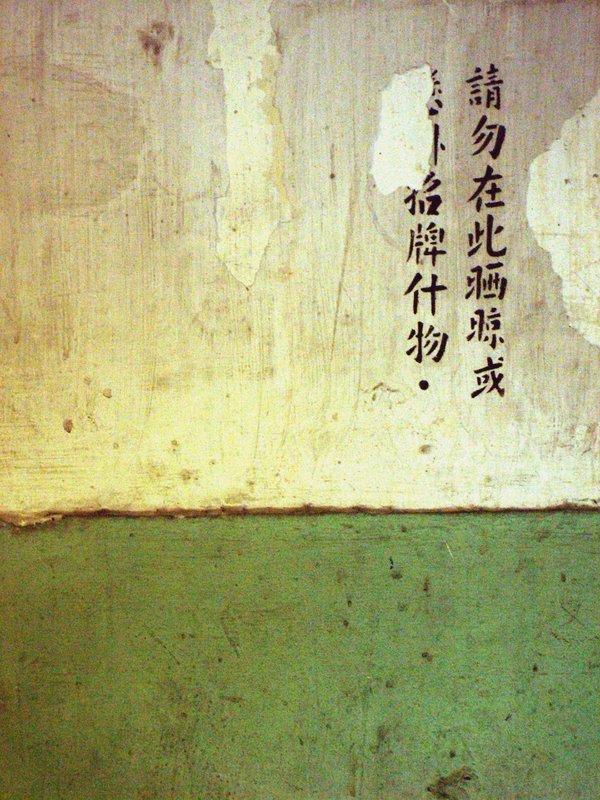 請勿在此晒晾或
招牌什物•